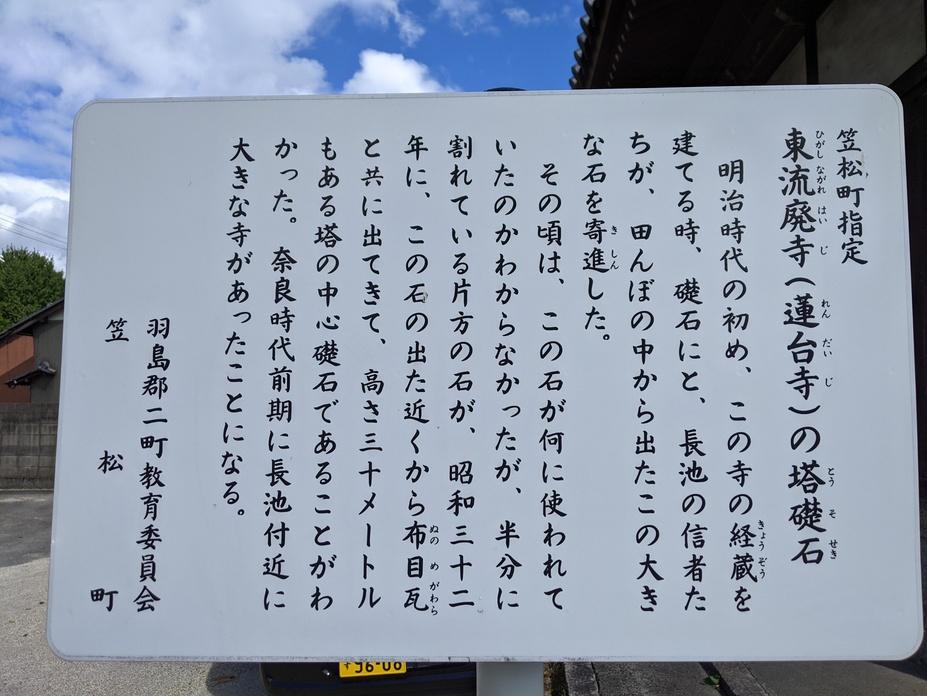 笠松町指定
東流廃寺(蓮台寺)の塔礎石
明治時代の初め、この寺の経蔵を
建てる時、礎石にと、長池の信者た
ちが、田んぼの中から出たこの大き
な石を寄進した。
その頃は、この石が何に使われて
いたのかわからなかったが、半分に
割れている片方の石が、昭和三十二
年に、この石の出た近くから布目瓦
と共に出てきて、高さ三十メートル
もある塔の中心礎石であることがわ
かった。奈良時代前期に長池付近に
大きな寺があったことになる。
羽島郡二町教育委員会
笠松町